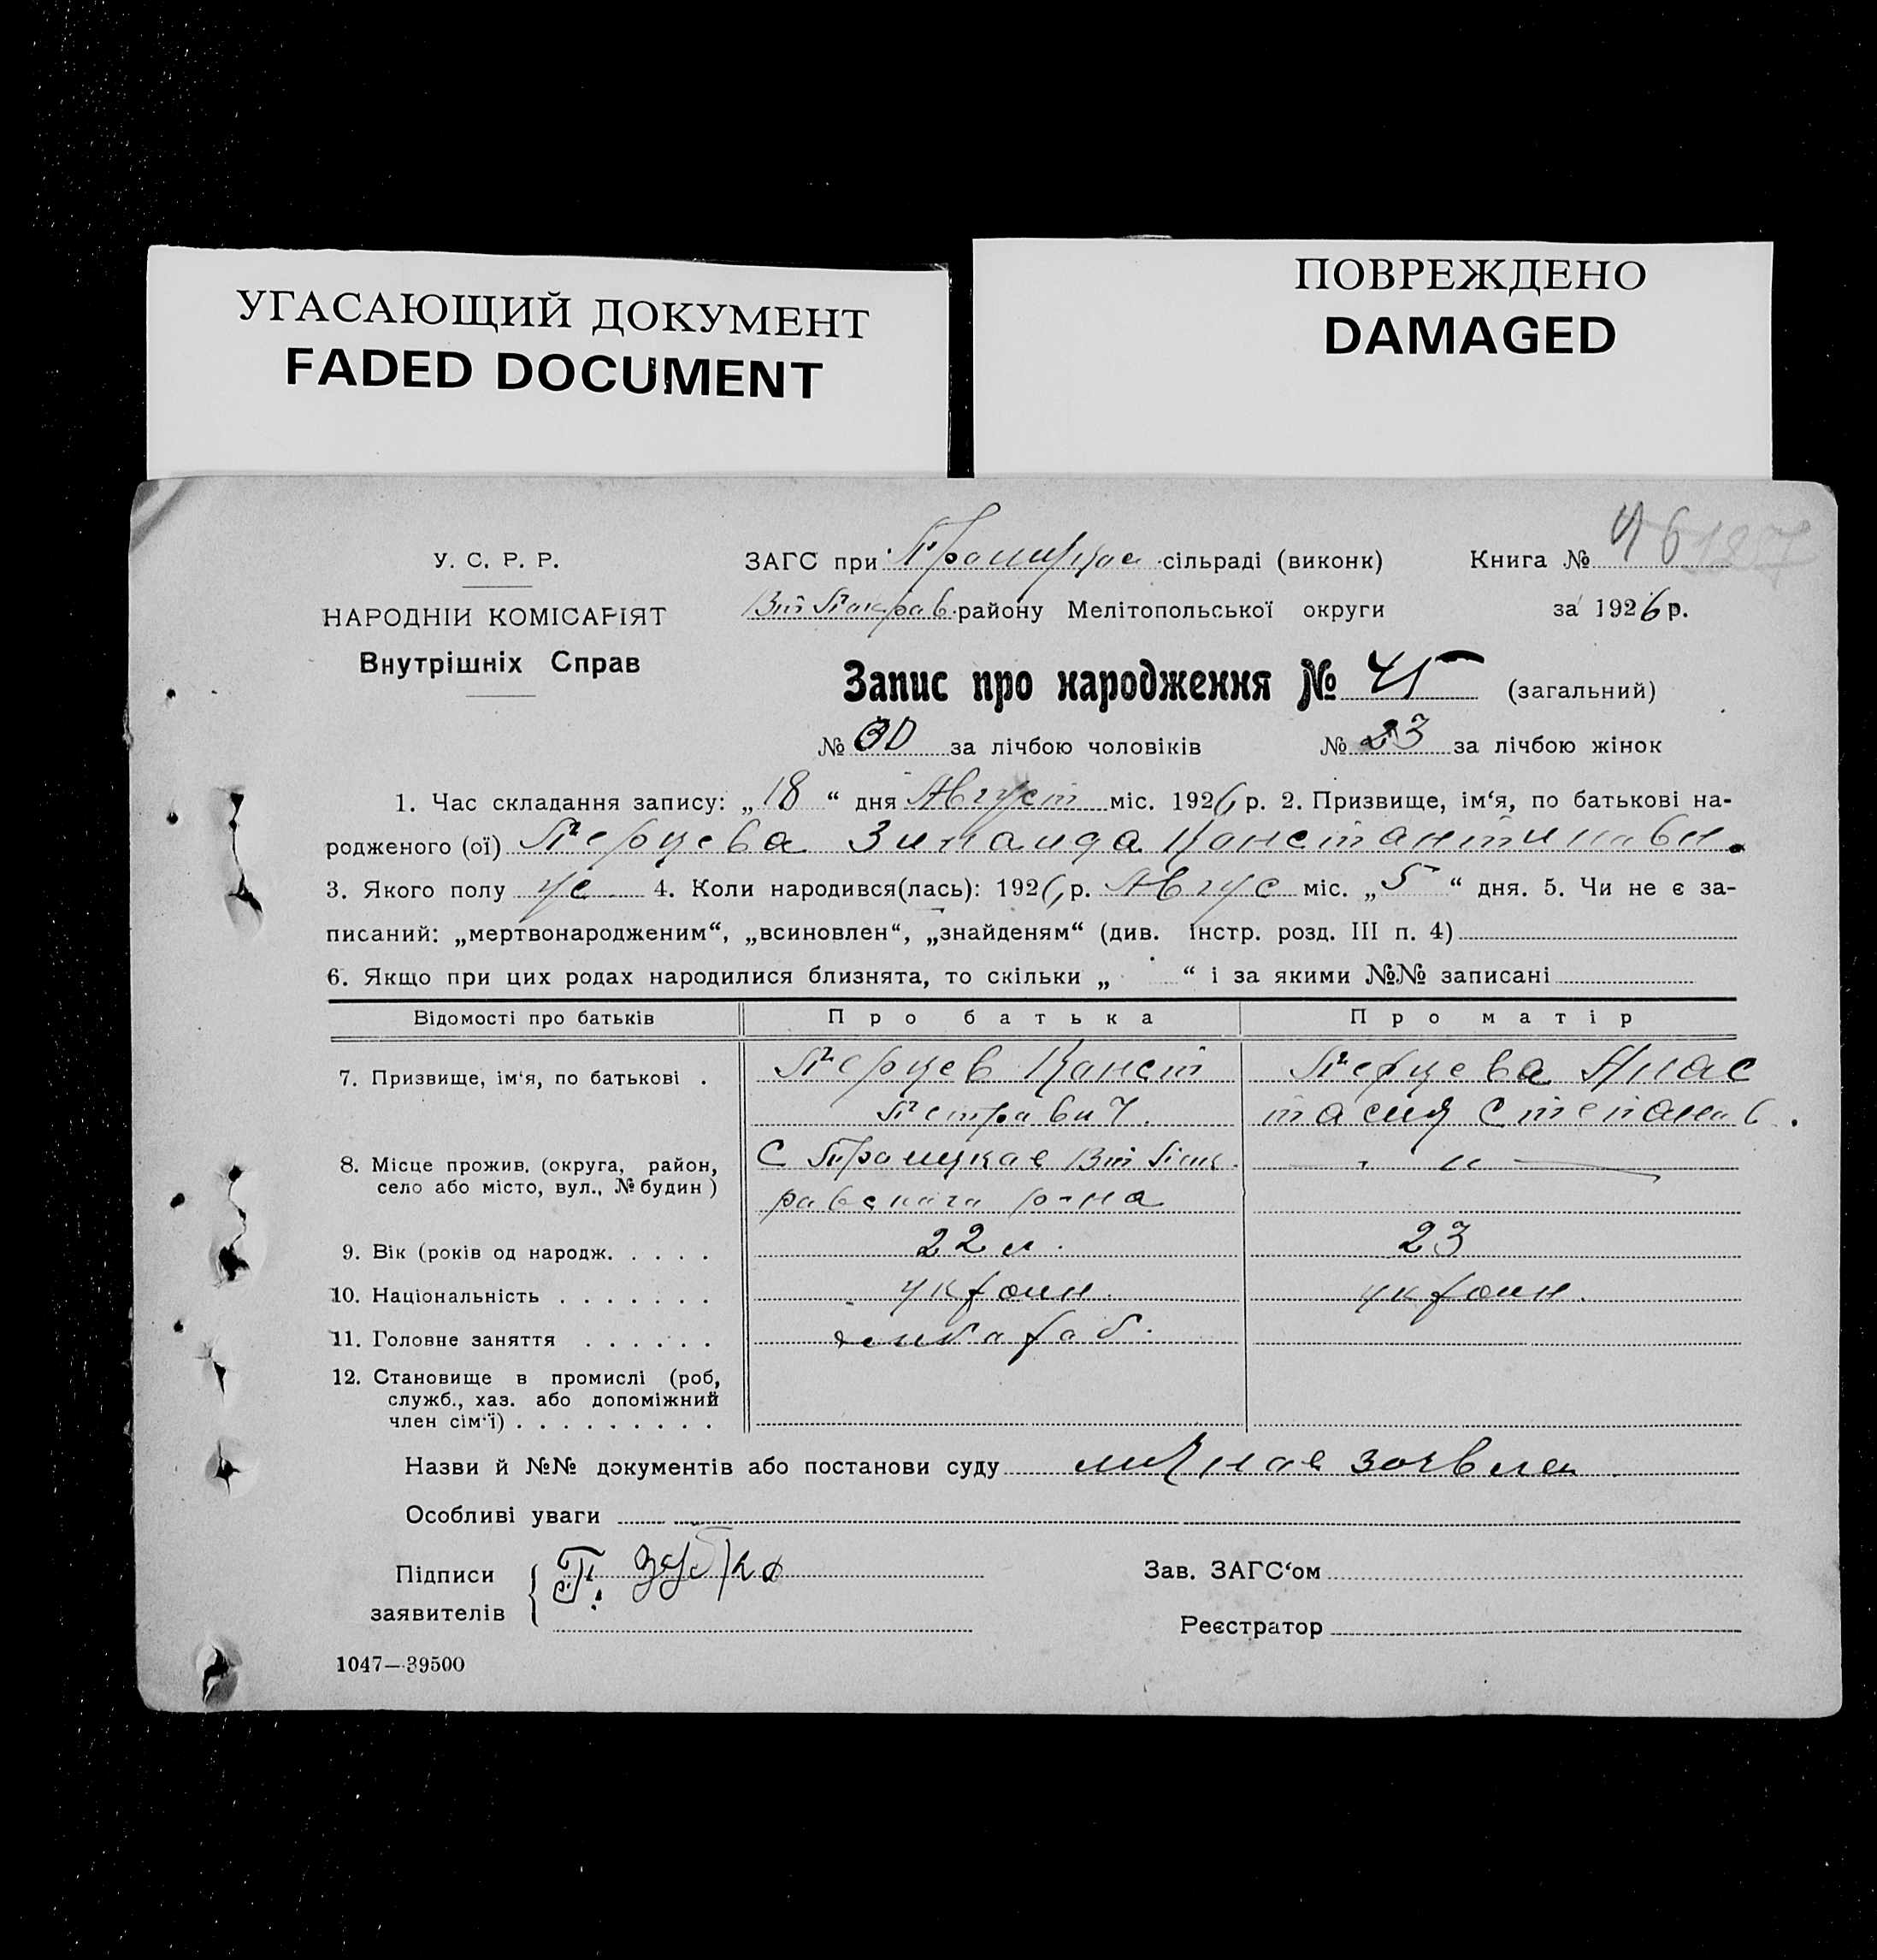 УГАСАЮЩИЙ ДОКУМЕНТ
FADED DOCUMENT
ПОВРЕЖДЕНО
DAMAGED
У. С. Р. Р.
НАРОДНІЙ КОМІСАРІЯТ
Внутрішніх Справ
ЗАГС при Троицкае сільраді (виконк) Книга №
району Мелітопольської округи за 1926 р.
Запис про народження № 45 (загальний)
№ за лічбою чоловіків № 23 за лічбою жінок
1. Час складання запису: „18“ дня Август міс. 1926 р. 2. Призвище, ім‘я, по батькові на-
родженого (ої) Перцева Зинаида Канстантинавн.
3. Якого полу же 4. Коли народився(лась): 1926 р. Авгус міс. „5“ дня. 5. Чи не є за-
писаний: „мертвонародженим“, „всиновлен“, „знайденям“ (див. Інстр. розд. III п. 4)
6. Якщо при цих родах народилися близнята, то скільки „ “ і за якими №№ записані
Відомості про батьків Про батька Про матір
7. Призвище, ім‘я, по батькові . Перцев Канст Перцева Анас
Петравич. тасия Степанав.
8. Місце прожив. (округа, район, село або місто, вул., № будин) С Траицкае Вт Пак. — „ —
равскага р-на
9. Вік (років од народж. . . . . 22 л. 23
10. Національність . . . . . . . украин. украин.
11. Головне заняття . . . . . .
12. Становище в промислі (роб,
служб., хаз. або допоміжний
член сім‘ї) . . . . . . . . .
Назви й №№ документів або постанови суду личнае заявлен
Особливі уваги
Підписи
заявителів
Зав. ЗАГС‘ом
Реєстратор
1047—39500